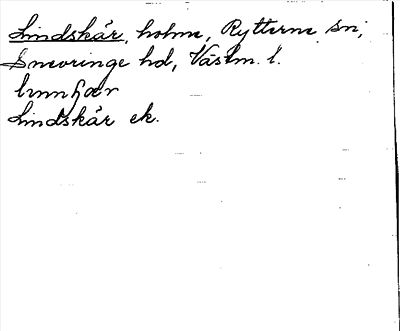 Lindskär, holme, Rytterne sn,
Snevringe hd, Västm. l.
Lindskär ek.